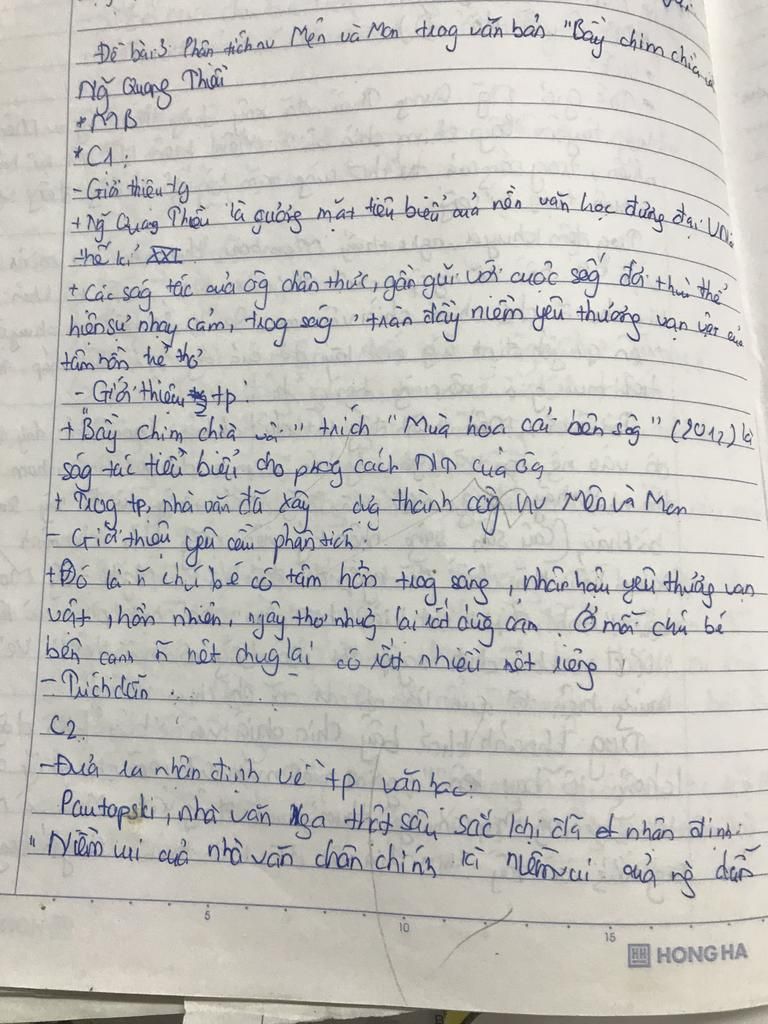 Đề bài 3: Phân tích nv Mên và Mon trog văn bản "Bầy chim chìa vôi
Ng~ Quang Thiều
* MB
* C1:
- Giới thiệu tg
+ Ng~ Quang Thiều là gương mặt tiêu biểu của nền văn học đương đại VN
thế kỉ XXI.
+ Các ság tác của ôg chân thực, gần gũi với cuộc sốg đời thườ thể
hiện sự nhạy cảm, trog ság, tràn đầy niềm yêu thương vạn vật của
tâm hồn trẻ thơ
- Giới thiệu tp:
+ "Bầy chim chìa vôi" trích "Mùa hoa cải bên sôg" (2012) là
ság tác tiêu biểu cho phog cách NT của ôg
+ Trog tp, nhà văn đã xây dựg thành côg nv Mên và Mon
- Giới thiệu yêu cầu phân tích:
+ Đó là ~ chú bé có tâm hồn trog sáng, nhân hậu yêu thương vạn
vật, hồn nhiên, ngây thơ nhưg lại rất dũg cảm. Ở mỗi chú bé
bên cạnh ~ nét chug lại có rất nhiều nét riêng
- Trích dẫn ...
C2.
- Đưa ra nhận định về tp văn học:
Pautopski, nhà văn Nga thật sâu sắc khi đã có nhận định:
"Niềm vui của nhà văn chân chính là niềm vui của ng` dẫn
5 10 15
HH HONG HA